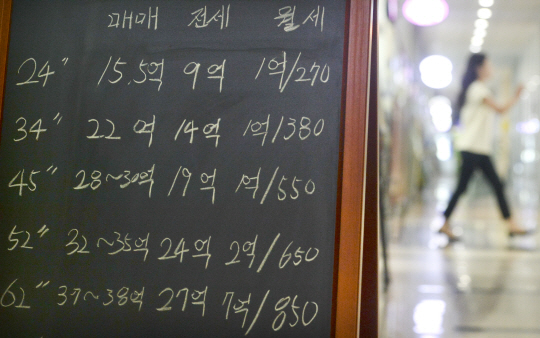 매매 전세 월세
24" 15.5억 9억 1억/270
34" 22억 14억 1억/380
45" 28~30억 19억 1억/550
52" 32~35억 24억 2억/650
62" 37~38억 27억 7억/850